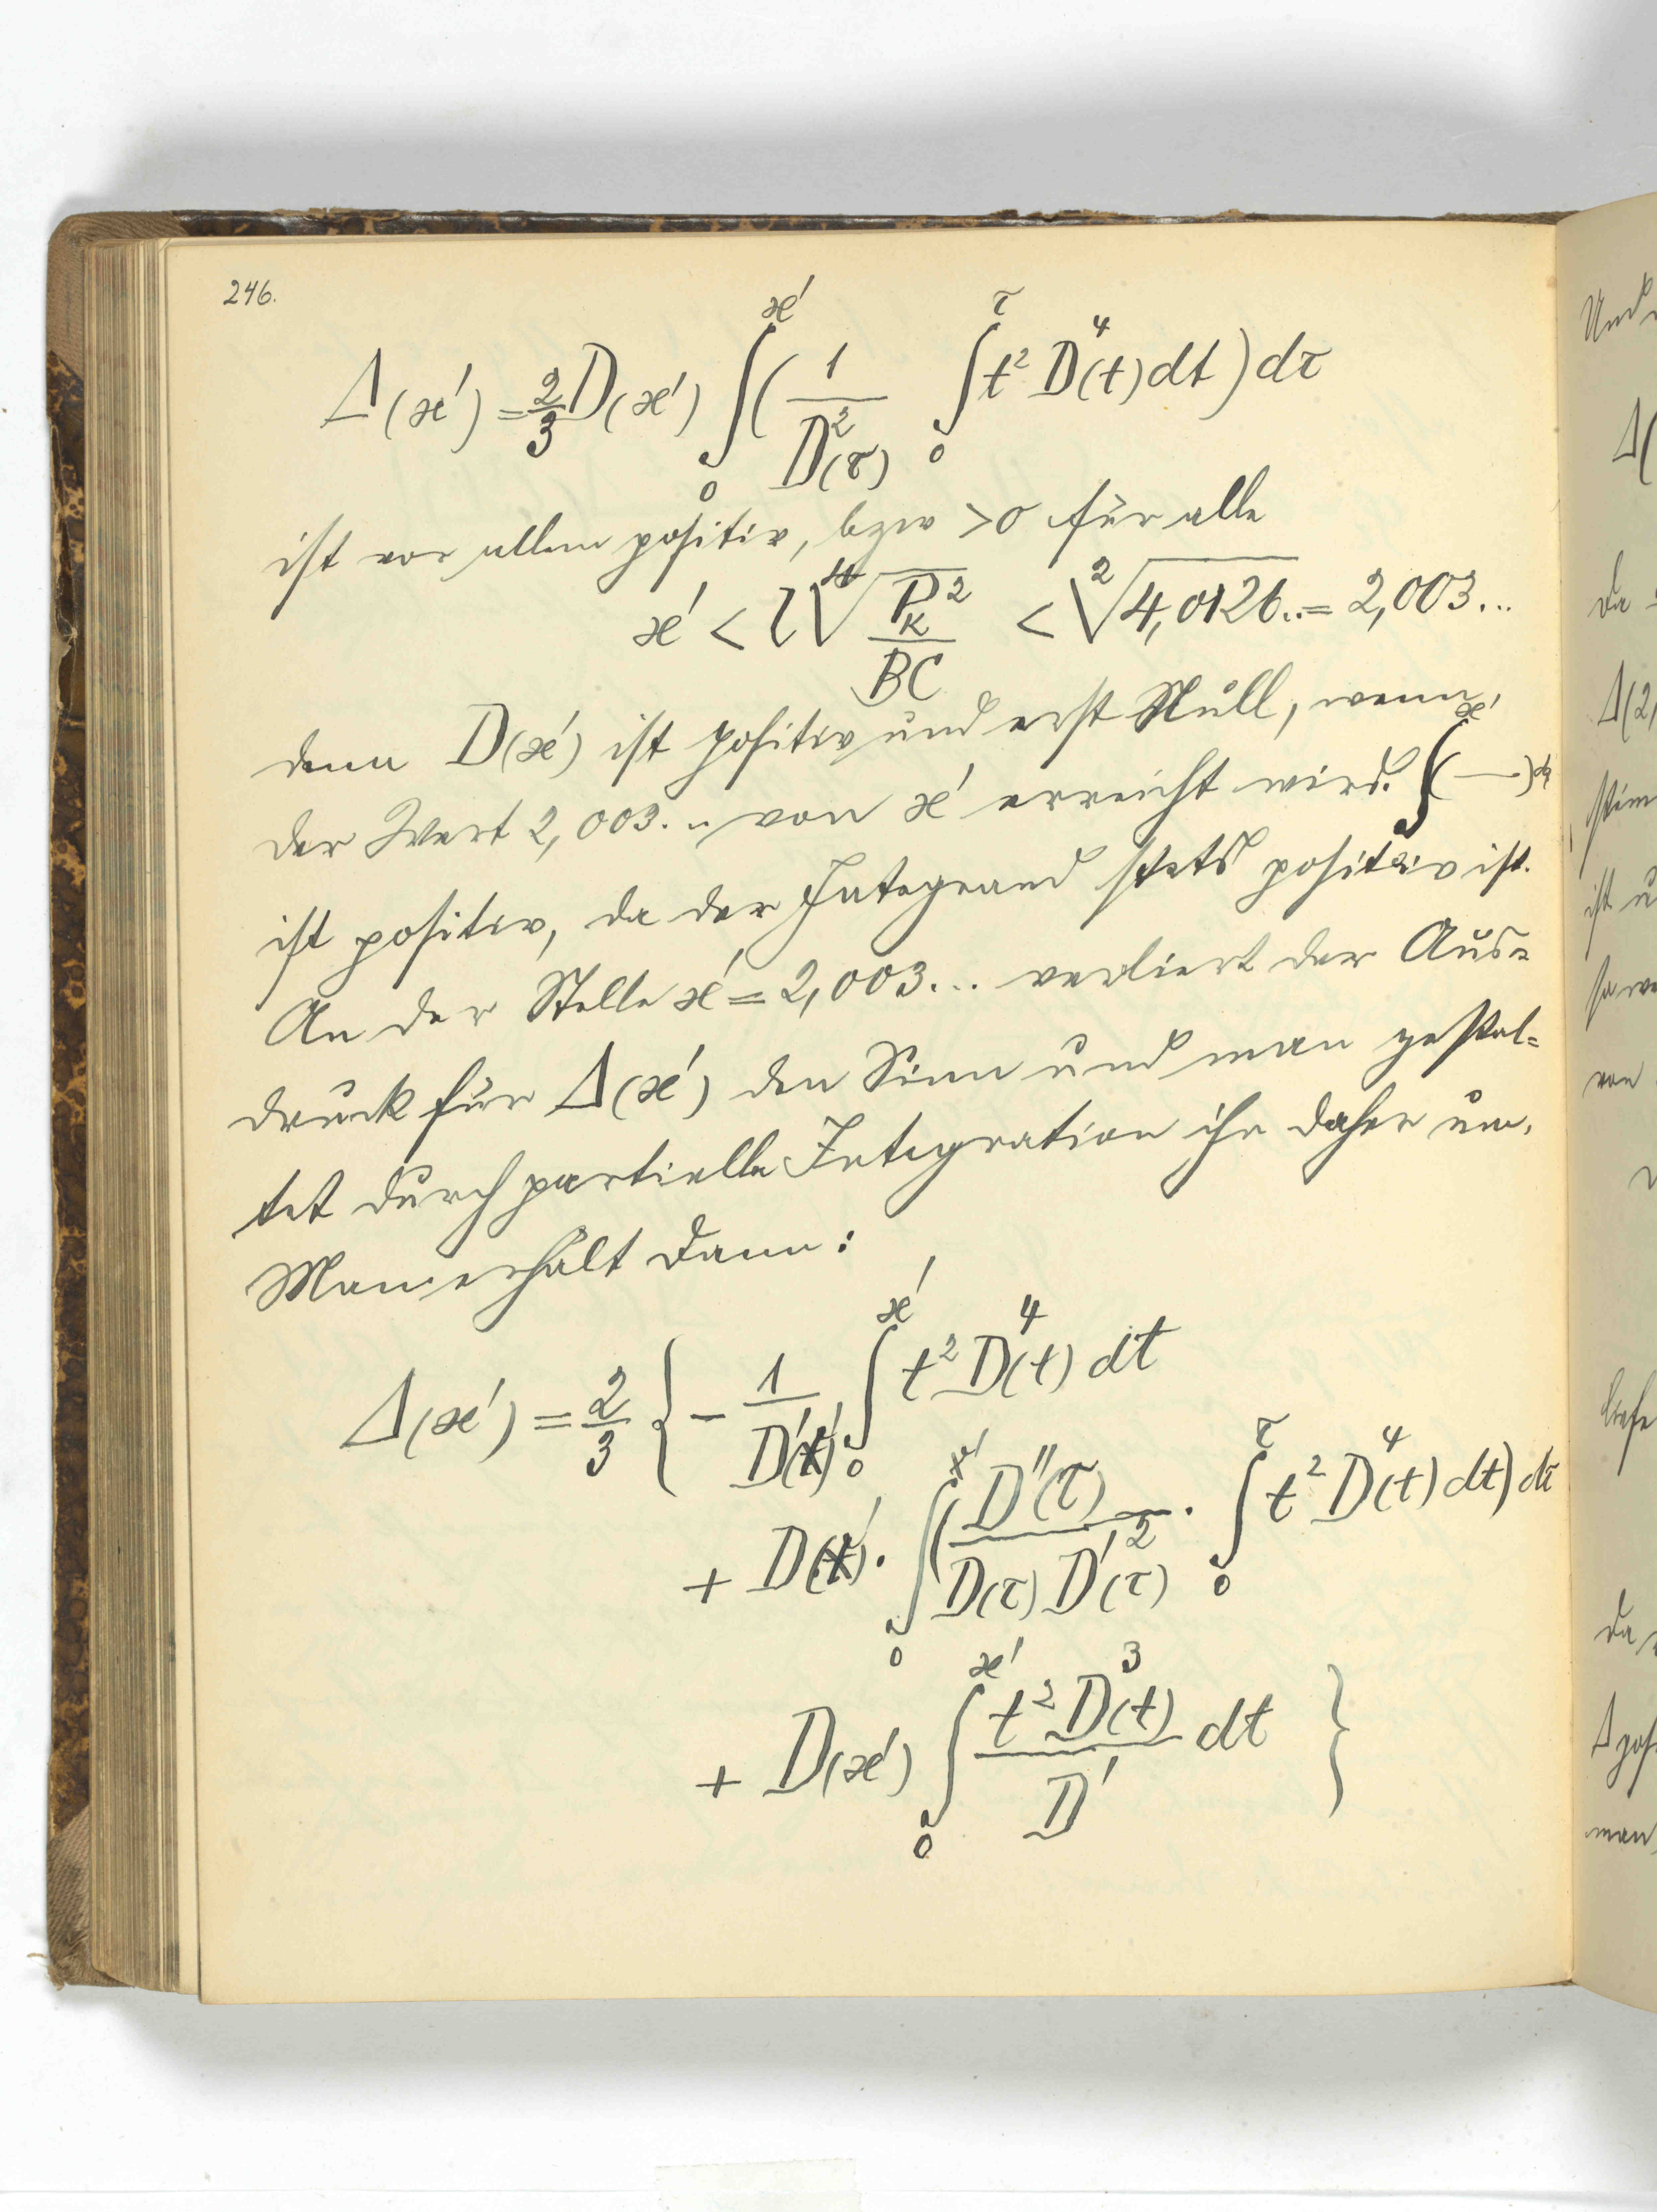 246.
Δ(x') = 2/3 D(x') ∫₀^x' ( 1/D²(τ) ∫₀^τ t² D⁴(t) dt ) dτ
ist vor allem positiv, bzw > 0 für alle
x' < l ⁴√(P_K²/BC) < ²√4,0126.. = 2,003...
denn D(x') ist positiv und erst Null, wenn
der Wert 2,003... von x' erreicht wird. ∫₀^x' (—)dτ
ist positiv, da der Integrand stets positiv ist.
An der Stelle x' = 2,003... verliert der Aus=
druck für Δ(x') den Sinn und man gestal=
tet durch partielle Integration ihn daher um.
Man erhält dann:
Δ(x') = 2/3 { - 1/D'(x') ∫₀^x' t² D⁴(t) dt
+ D(x') · ∫₀^x' ( D''(τ)/(D(τ) D'²(τ)) · ∫₀^τ t² D⁴(t) dt) dτ
+ D(x') ∫₀^x' t² D³(t)/D' dt }
Und
Δ(
da
Δ(2,
ist
von
da
man